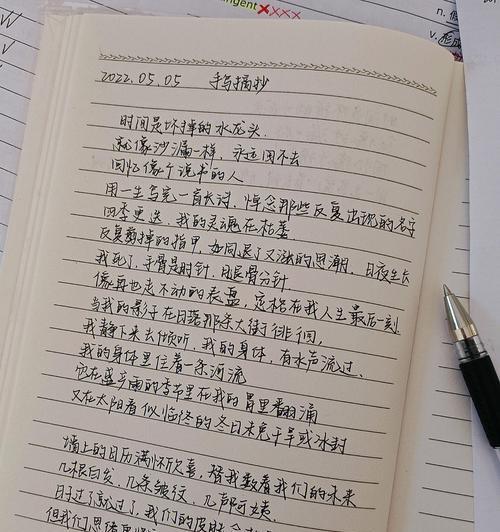 ngent ×xxx
n.
v. 形成
2022.05.05 手写摘抄
时间是坏掉的水龙头.
就像沙漏一样，永远困不去
回忆像个说书的人
用一生写完一首长诗，悼念那些反复出现的名字
四季更迭，我的灵魂在枯萎.
反复剪掉的指甲，如同退了又涨的思潮，日夜生长
我死了，手骨是时针，腿骨分针
像再也走不动的表盘，定格在我人生最后一刻
当我的影子在日落那条大街徘徊，
我静下来去倾听，我的身体，有水声流过.
我的身体里住着一条河流
它在盛产雨的季节里在我的胃里翻涌
又在太阳看似临终的冬日未免干旱或冰封
墙上的日历满怀欣喜，替我数着我们的未来
几根白发，几条皱纹，几声阿姨
日子过了就过了，我们的皮肤会
但我们思绪